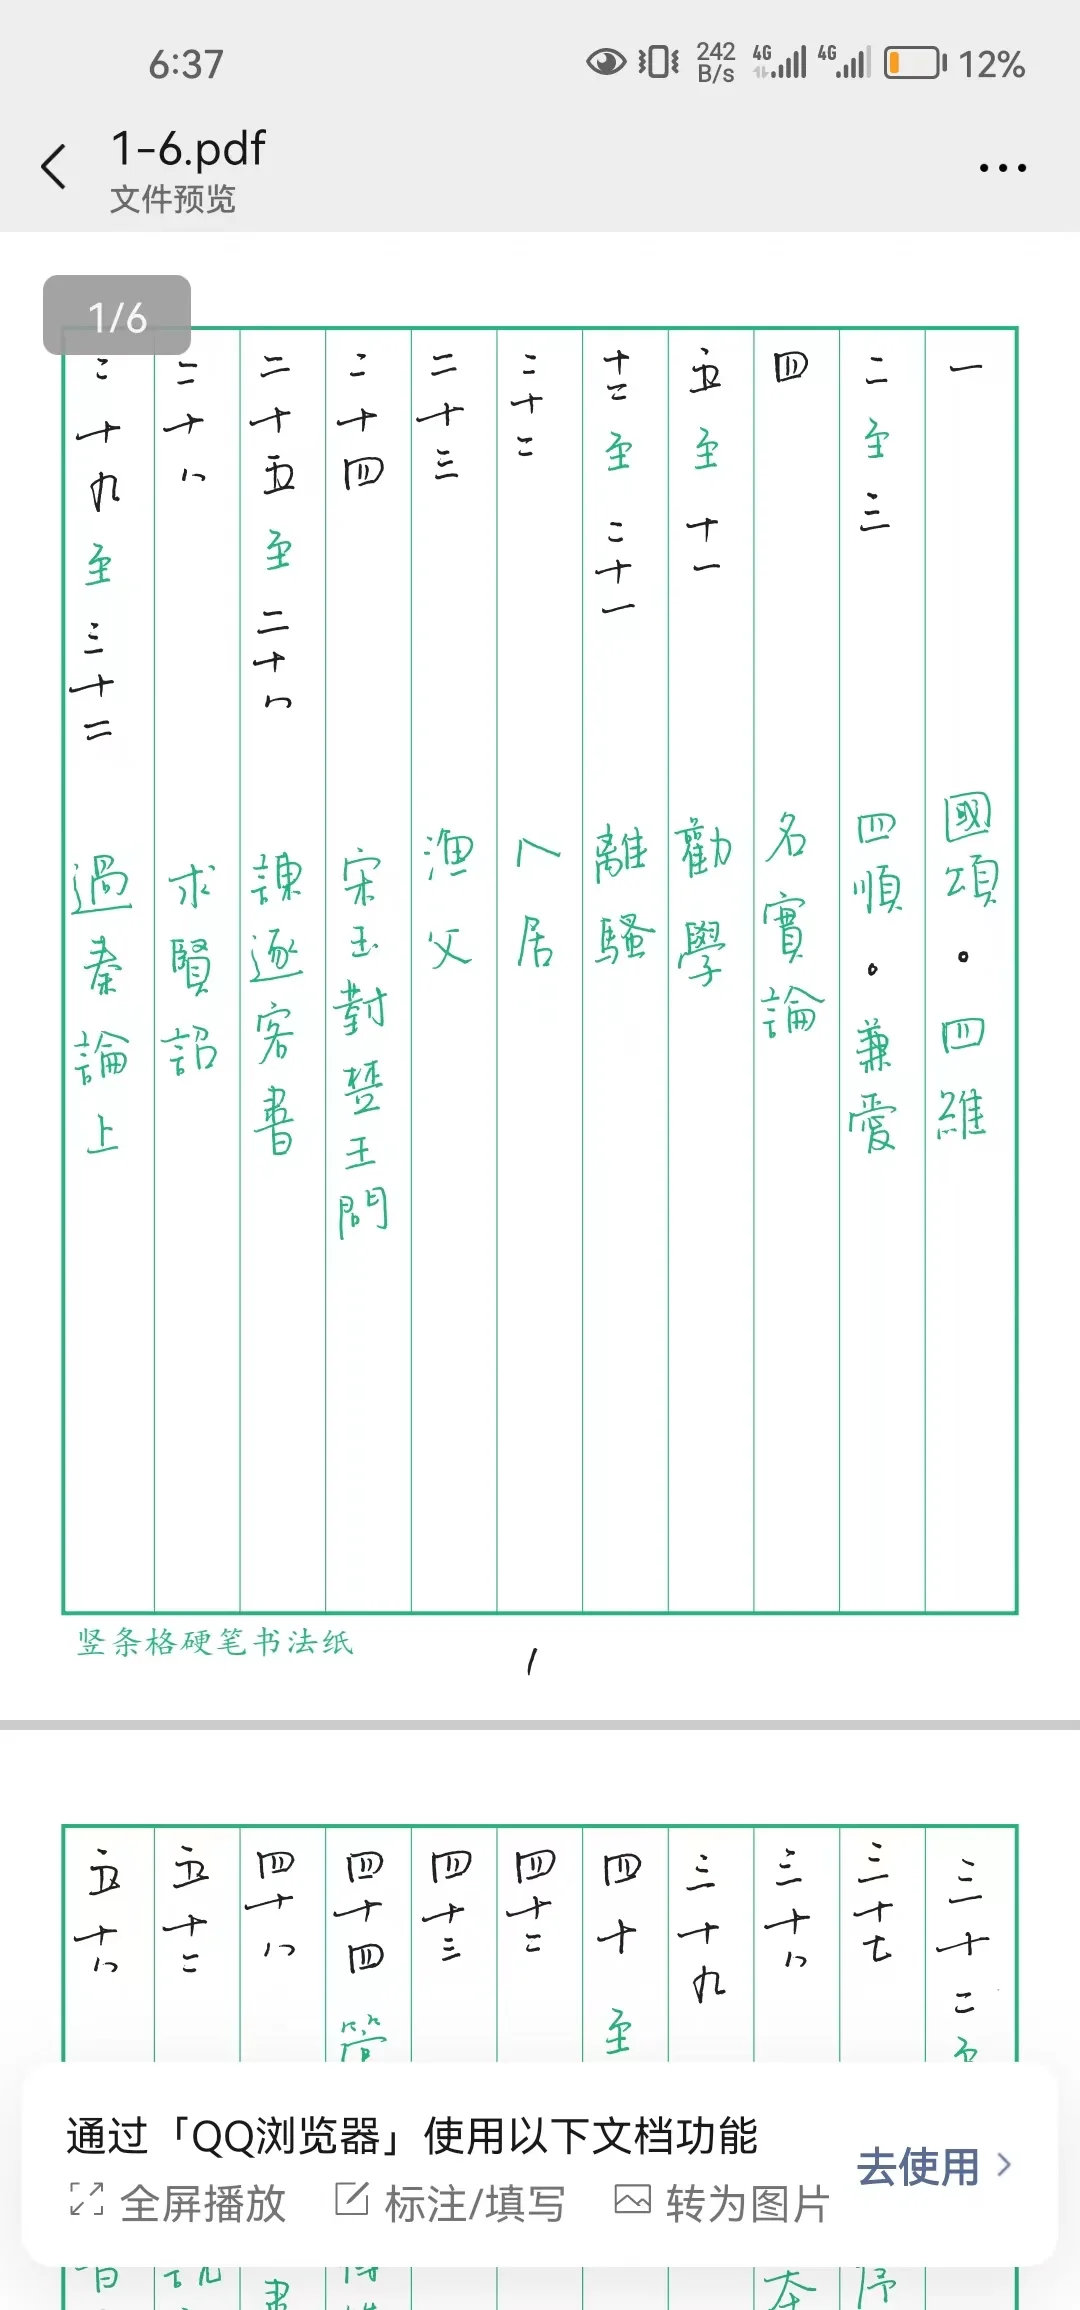 6:37
242 B/s
4G
4G
12%
1-6.pdf
文件预览
1/6
一 國頌。四維
二至三 四順。兼愛
四 名實論
五至十一 勸學
十二至二十一 離騷
二十二 卜居
二十三 漁父
二十四 宋玉對楚王問
二十五至二十八 諫逐客書
二十八 求賢詔
二十九至三十二 過秦論上
竖条格硬笔书法纸
1
三十二至
三十七
三十八
三十九
四十至
四十二
四十三
四十四 管
四十八
五十二
五十八
通过「QQ浏览器」使用以下文档功能
去使用
全屏播放
标注/填写
转为图片